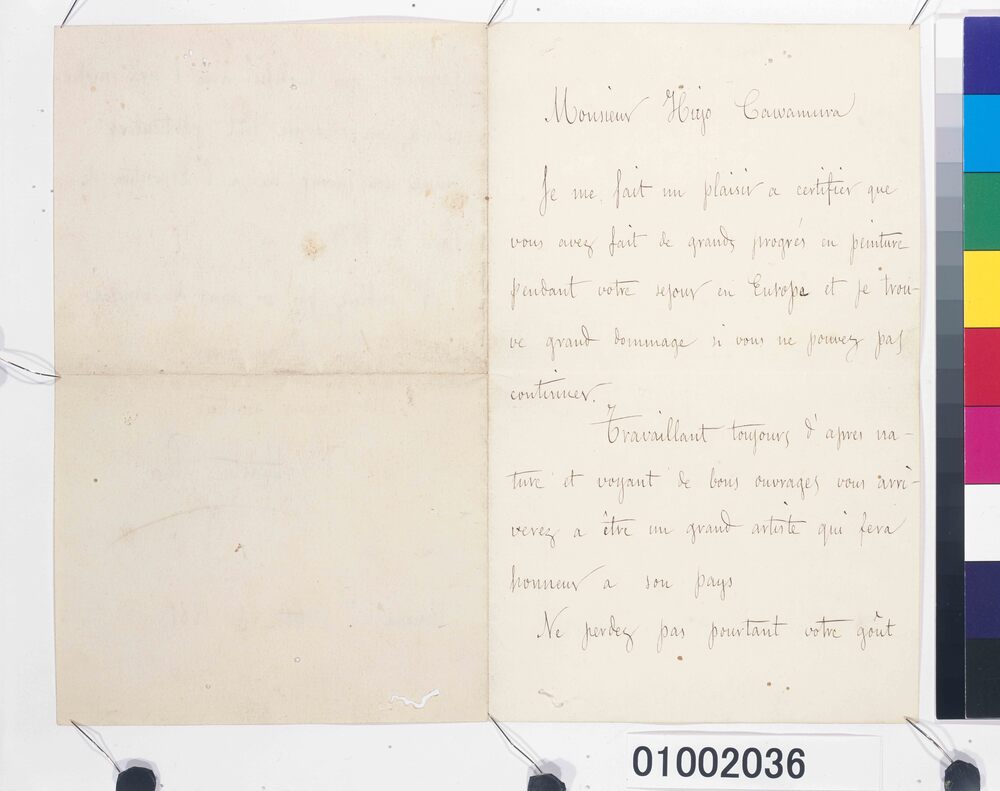 Monsieur Hijo Cawamura
Je me fait un plaisir a certifier que
vous avez fait de grands progrés en peinture
pendant votre sejour en Europe et je trou-
ve grand dommage si vous ne pouvez pas
continuer.
Travaillant toujours d'apres na-
ture et voyant de bons ouvrages vous arri-
verez a être un grand artiste qui fera
honneur a son pays
Ne perdez pas pourtant votre goût
01002036